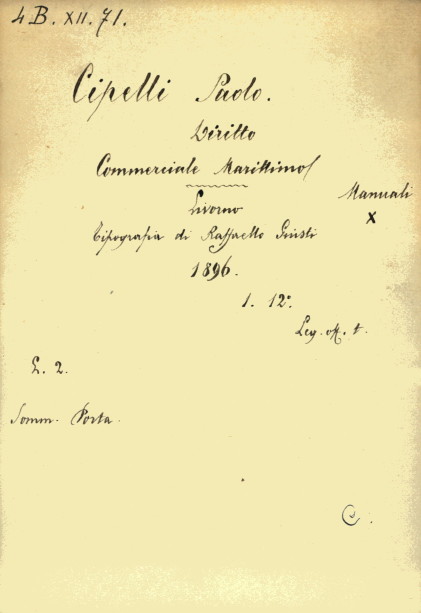 4 B. XII. 71.
Cipelli Paolo.
Diritto
Commerciale Marittimo
Manuali
X
Livorno
Tipografia di Raffaello Giusti
1896.
1. 12°.
Leg. M. t.
L. 2.
Somm. Porta.
C.